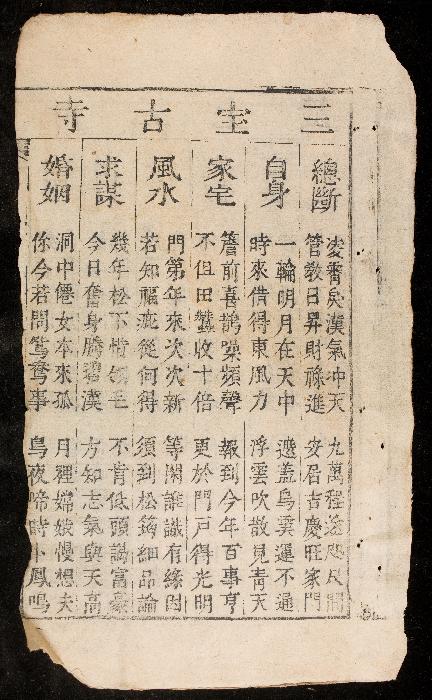 三宝古寺
總斷
凌霄矣漢氣冲天 九萬程途咫尺間
管教日昇財祿進 安居吉慶旺家門
自身
一輪明月在天中 遮盖烏雲運不通
時來借得東風力 浮雲吹散見青天
家宅
簷前喜鵲噪頻聲 報到今年百事亨
不但田蠶收十倍 更於門戸得光明
風水
門第年來次次新 等閑誰識有緣因
若知福庇從何得 須到松筠細品論
求謀
幾年松下惜翎毛 不肯低頭謁富豪
今日奮身騰碧漢 方知志氣與天高
婚姻
洞中僊女本來孤 月裡嫦娥慢想夫
你今若問鴛鴦事 鳥夜啼時卜鳳鳴